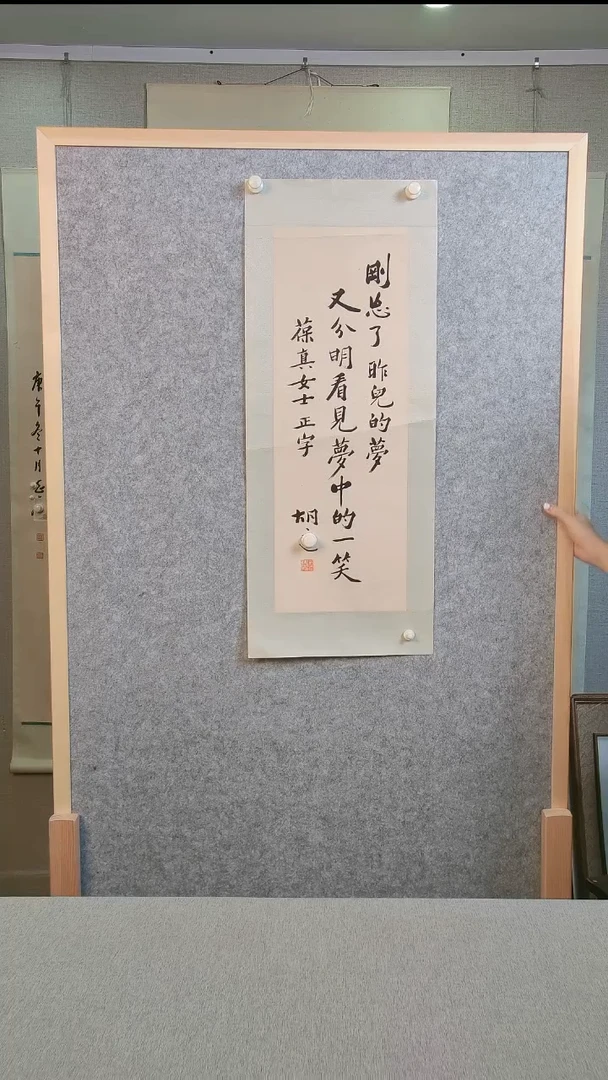 剛忘了昨兒的夢
又分明看見夢中的一笑
葆真女士正字
胡
庚午冬十月